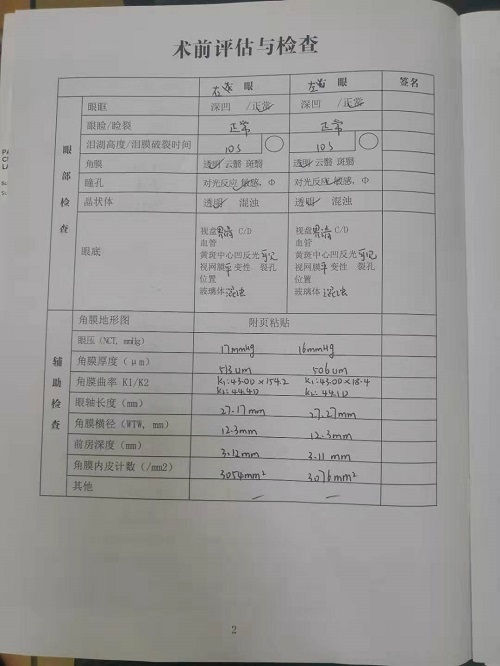 术前评估与检查
右 眼 左 眼 签名
眼部检查
眼眶 深凹 /正常 深凹 /正常
眼睑/睑裂 正常 正常
泪湖高度/泪膜破裂时间 10s 10s
角膜 透明 云翳 斑翳 透明 云翳 斑翳
瞳孔 对光反应 敏感, Φ 对光反应 敏感, Φ
晶状体 透明 混浊 透明 混浊
眼底
视盘界清 C/D 视盘界清 C/D
血管 血管
黄斑中心凹反光可见 黄斑中心凹反光可见
视网膜平 变性 裂孔 视网膜平 变性 裂孔
位置 位置
玻璃体 混浊 玻璃体 混浊
辅助检查
角膜地形图 附页粘贴
眼压 (NCT, mmHg) 17mmHg 16mmHg
角膜厚度 (μm) 513um 506um
角膜曲率 K1/K2 K1:43.00×154.2 K1:43.00×18.4
K2:44.40 K2:44.10
眼轴长度 (mm) 27.17mm 27.27mm
角膜横径 (WTW, mm) 12.3mm 12.3mm
前房深度 (mm) 3.12mm 3.11mm
角膜内皮计数 (/mm2) 3054mm² 3076mm²
其他 — —
2